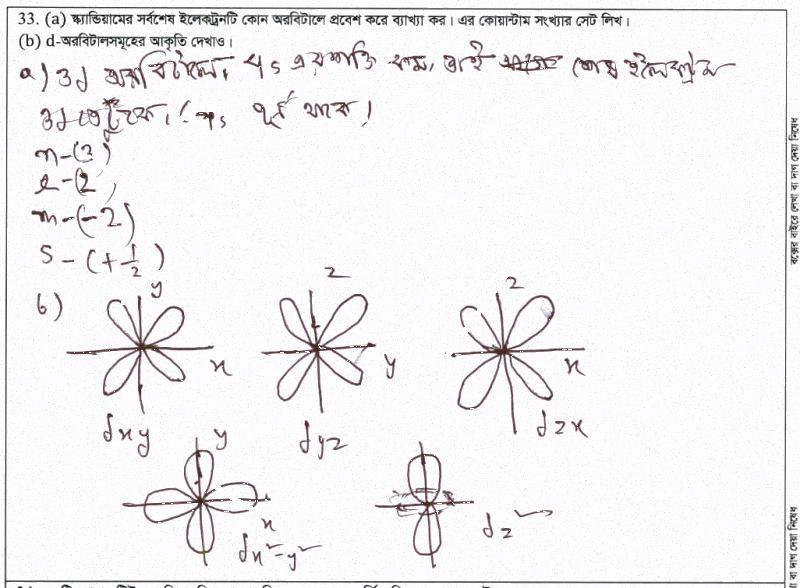 33. (a) স্ক্যান্ডিয়ামের সর্বশেষ ইলেকট্রনটি কোন অরবিটালে প্রবেশ করে ব্যাখ্যা কর। এর কোয়ান্টাম সংখ্যার সেট লিখ।
(b) d-অরবিটালসমূহের আকৃতি দেখাও।
a) 3d অরবিটালে, 4s এর শক্তি কম, তাই শেষ ইলেকট্রন
3d তে ঢুকে। 4s পূর্ণ থাকে।
n-(3)
l-(2)
m-(-2)
S-(+1/2)
b)
y z z
x y x
dxy dyz dzx
y
x
dx²-y² dz²
বক্সের বাইরে লেখা বা দাগ দেয়া নিষেধ
বা দাগ দেয়া নিষেধ